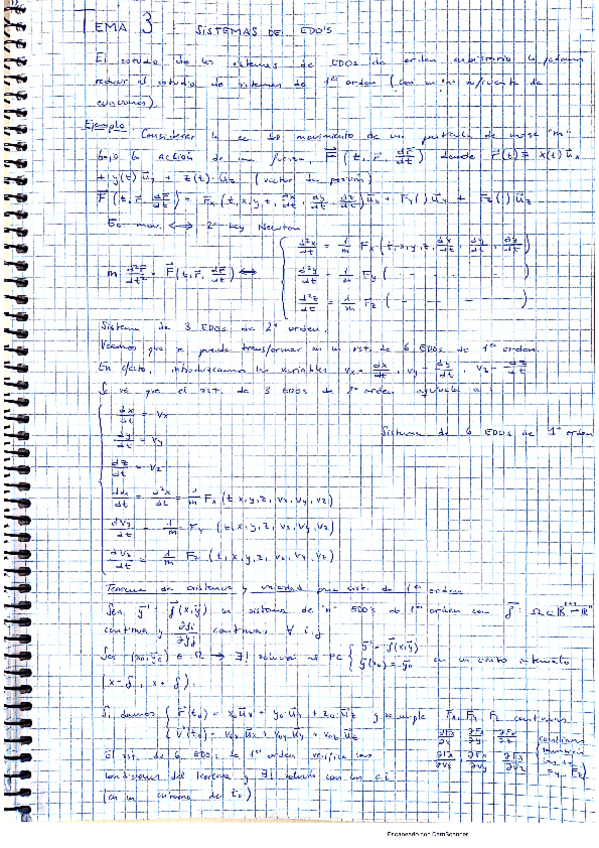 TEMA 3 SISTEMAS DE EDO'S
El estudio de los sistemas de EDOs de orden arbitrario lo podemos
reducir al estudio de sistemas de 1er orden (con un nº suficiente de
ecuaciones).
Ejemplo Considerar la ec. del movimiento de una partícula de masa "m"
bajo la ACCIÓN de una fuerza, F⃗ (t, r⃗, dr⃗/dt) donde r⃗(t) = x(t) u⃗x
+ y(t) u⃗y + z(t) u⃗z (vector de posición)
F⃗ (t, r⃗, dr⃗/dt) = Fx (t, x, y, z, dx/dt, dy/dt, dz/dt) u⃗x + Fy( ) u⃗y + Fz( ) u⃗z
Ec. mov. ⟷ 2ª Ley Newton
m d²r⃗/dt² = F⃗(t, r⃗, dr⃗/dt) ⟷ { d²x/dt = 1/m Fx (t, x, y, z, dx/dt, dy/dt, dz/dt)
d²y/dt = 1/m Fy ( - - - )
d²z/dt = 1/m Fz ( - - - )
Sistema de 3 EDOs de 2º orden.
Veamos que se puede transformar en un sist. de 6 EDOs de 1er orden.
En efecto, introduzcamos las variables vx = dx/dt, vy = dy/dt, vz = dz/dt
Se ve que el sist. de 3 EDOS de 2º orden equivale a:
dx/dt = vx
Sistema de 6 EDOs de 1er orden
dy/dt = vy
dz/dt = vz
dvx/dt = d²x/dt = 1/m Fx (t, x, y, z, vx, vy, vz)
dvy/dt = 1/m Fy (t, x, y, z, vx, vy, vz)
dvz/dt = 1/m Fz (t, x, y, z, vx, vy, vz)
Teorema de existencia y unicidad para sist. de 1er orden
Sea y⃗' = f⃗(x, y⃗) un sistema de "n" EDO's de 1er orden con f⃗: Ω⊂ℝⁿ⁺¹→ℝⁿ
continua y ∂fi/∂yj continuas ∀ i, j
Sea (x₀, y⃗₀) ∈ Ω → ∃! solución al PC { y⃗' = f⃗(x, y⃗) en un cierto intervalo
y⃗(x₀) = y⃗₀
(x - δ, x + δ)
Si damos { r⃗(t₀) = x₀ u⃗x + y₀ u⃗y + z₀ u⃗z y se cumple Fx, Fy, Fz continuas
v⃗(t₀) = v₀x u⃗x + v₀y u⃗y + v₀z u⃗z
∂Fx/∂x ∂Fx/∂y ∂Fx/∂z continuas
El sist. de 6 EDOs de 1er orden verifica las
∂Fx/∂vx ∂Fx/∂vy ∂Fx/∂vz
condiciones del teorema y ∃! solución con un c.i.
Fy, Fz)
(en un entorno de t₀)
Escaneado con CamScanner